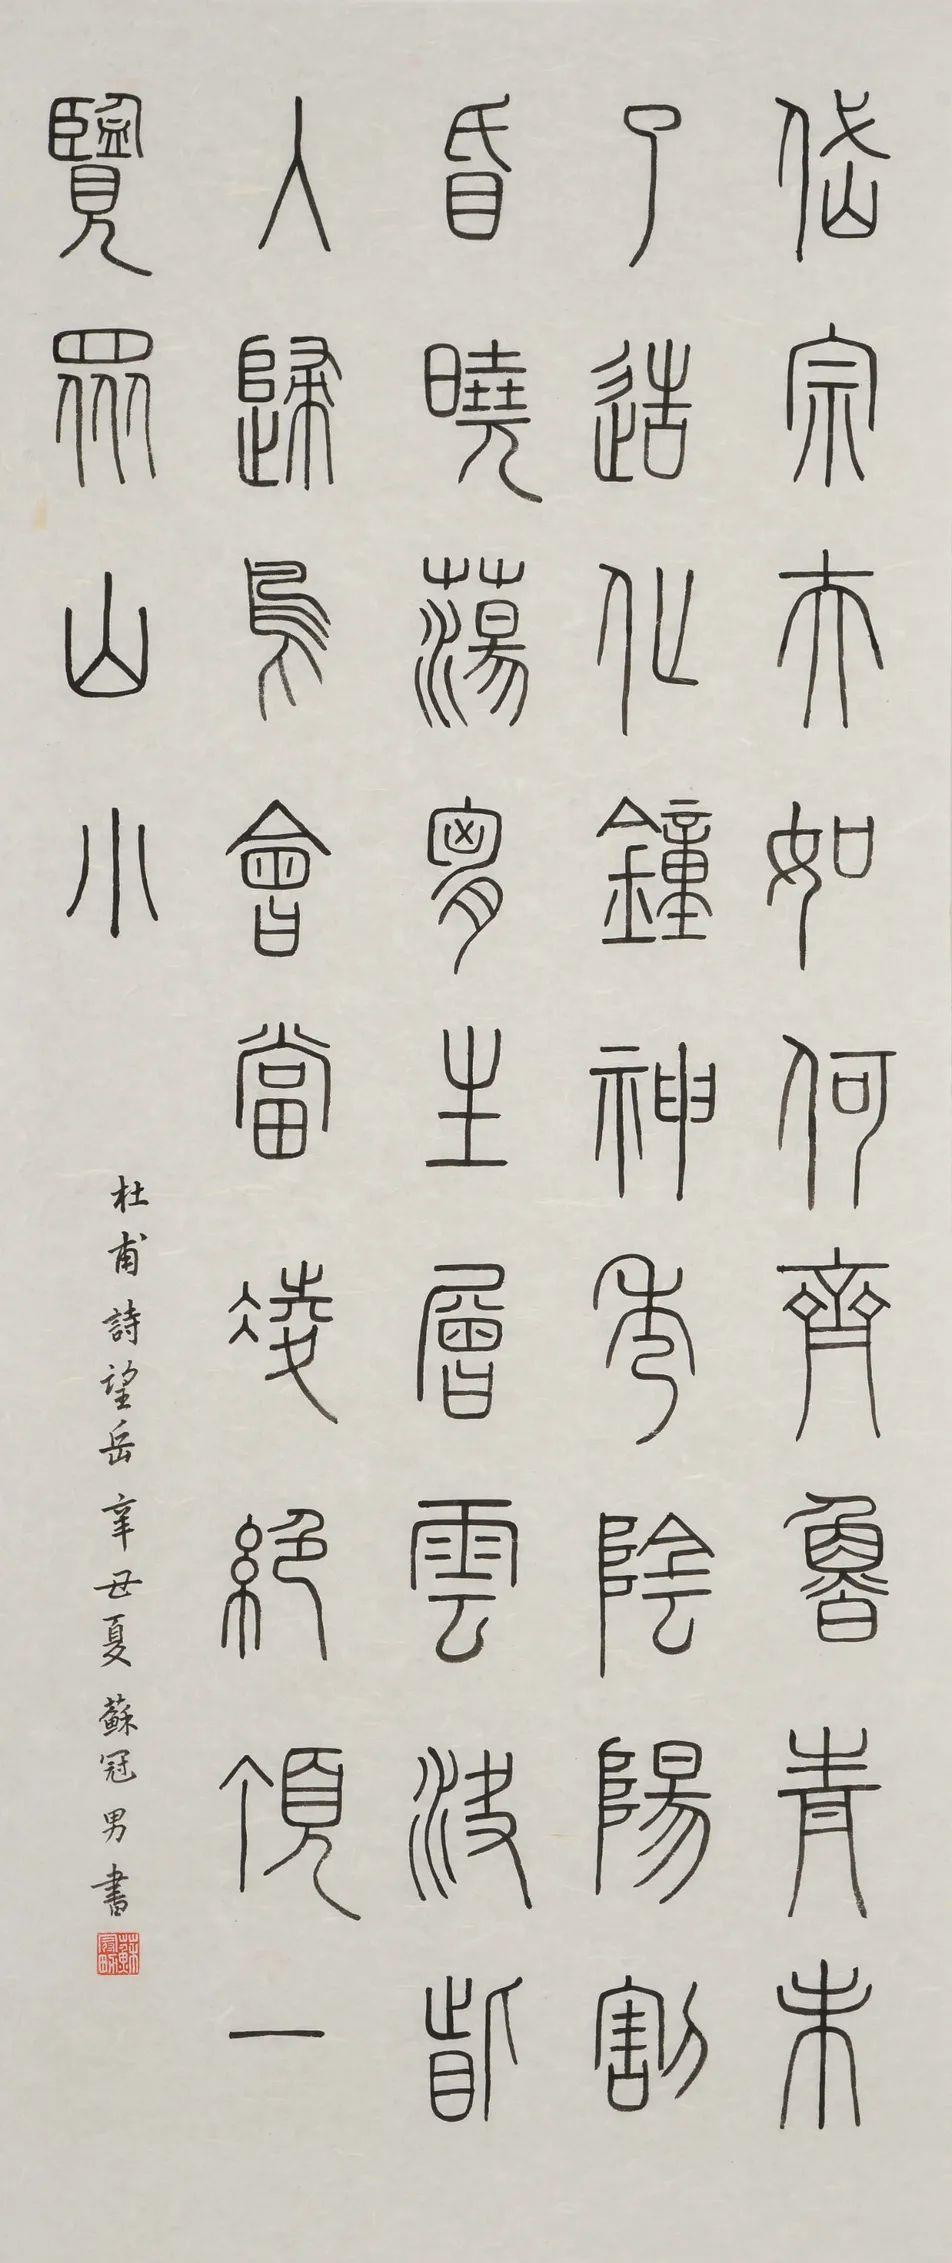 岱宗夫如何齊魯青未
了造化鐘神秀陰陽割
昏曉蕩胸生層雲決眥
入歸鳥會當凌絕頂一
覽眾山小
杜甫詩望岳辛丑夏蘇冠男書
蘇冠男